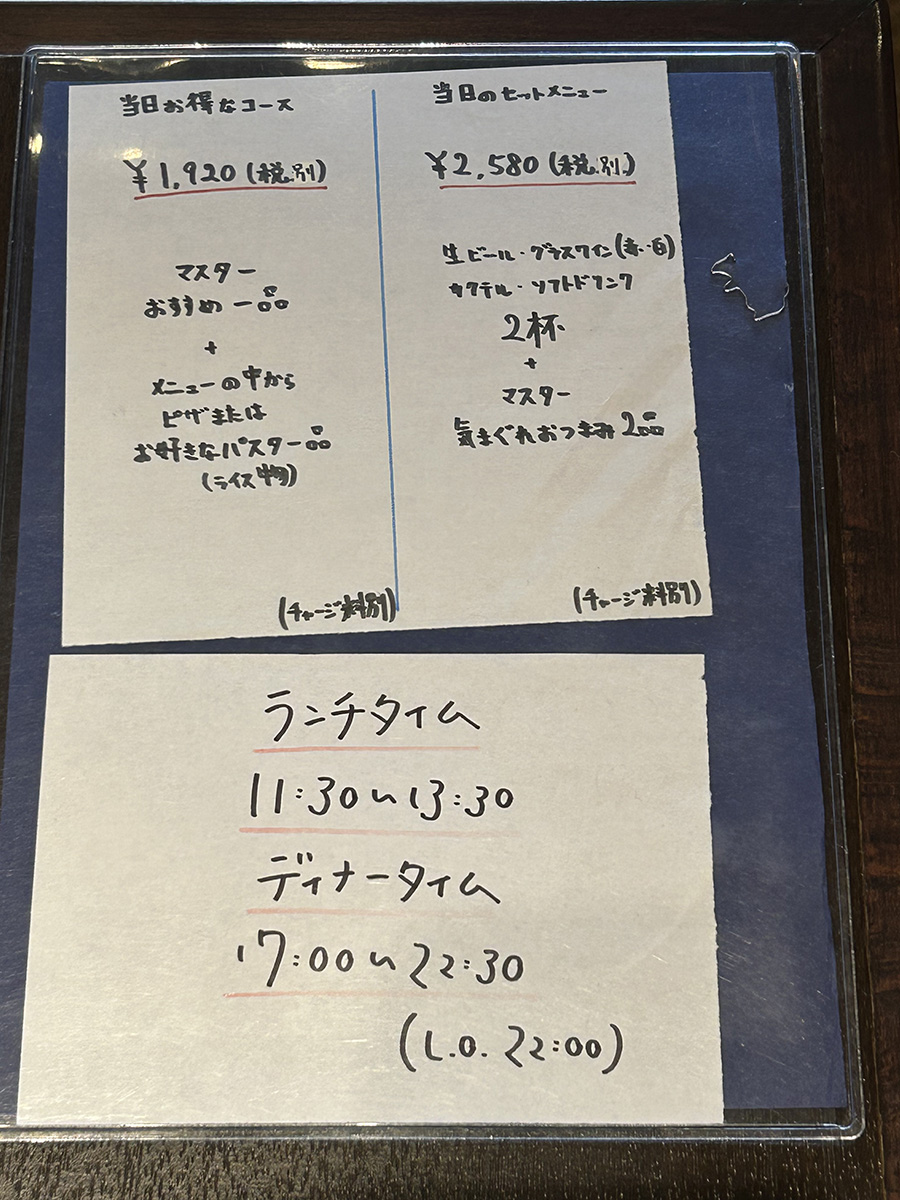 当日お得なコース
¥1,920(税別)
マスター
おすすめ一品
+
メニューの中から
ピザまたは
お好きなパスタ一品
(ライス物)
(チャージ料別)
当日のセットメニュー
¥2,580(税別)
生ビール・グラスワイン(赤・白)
カクテル・ソフトドリンク
2杯
+
マスター
気まぐれおつまみ2品
(チャージ料別)
ランチタイム
11:30〜13:30
ディナータイム
17:00〜22:30
(L.O. 22:00)